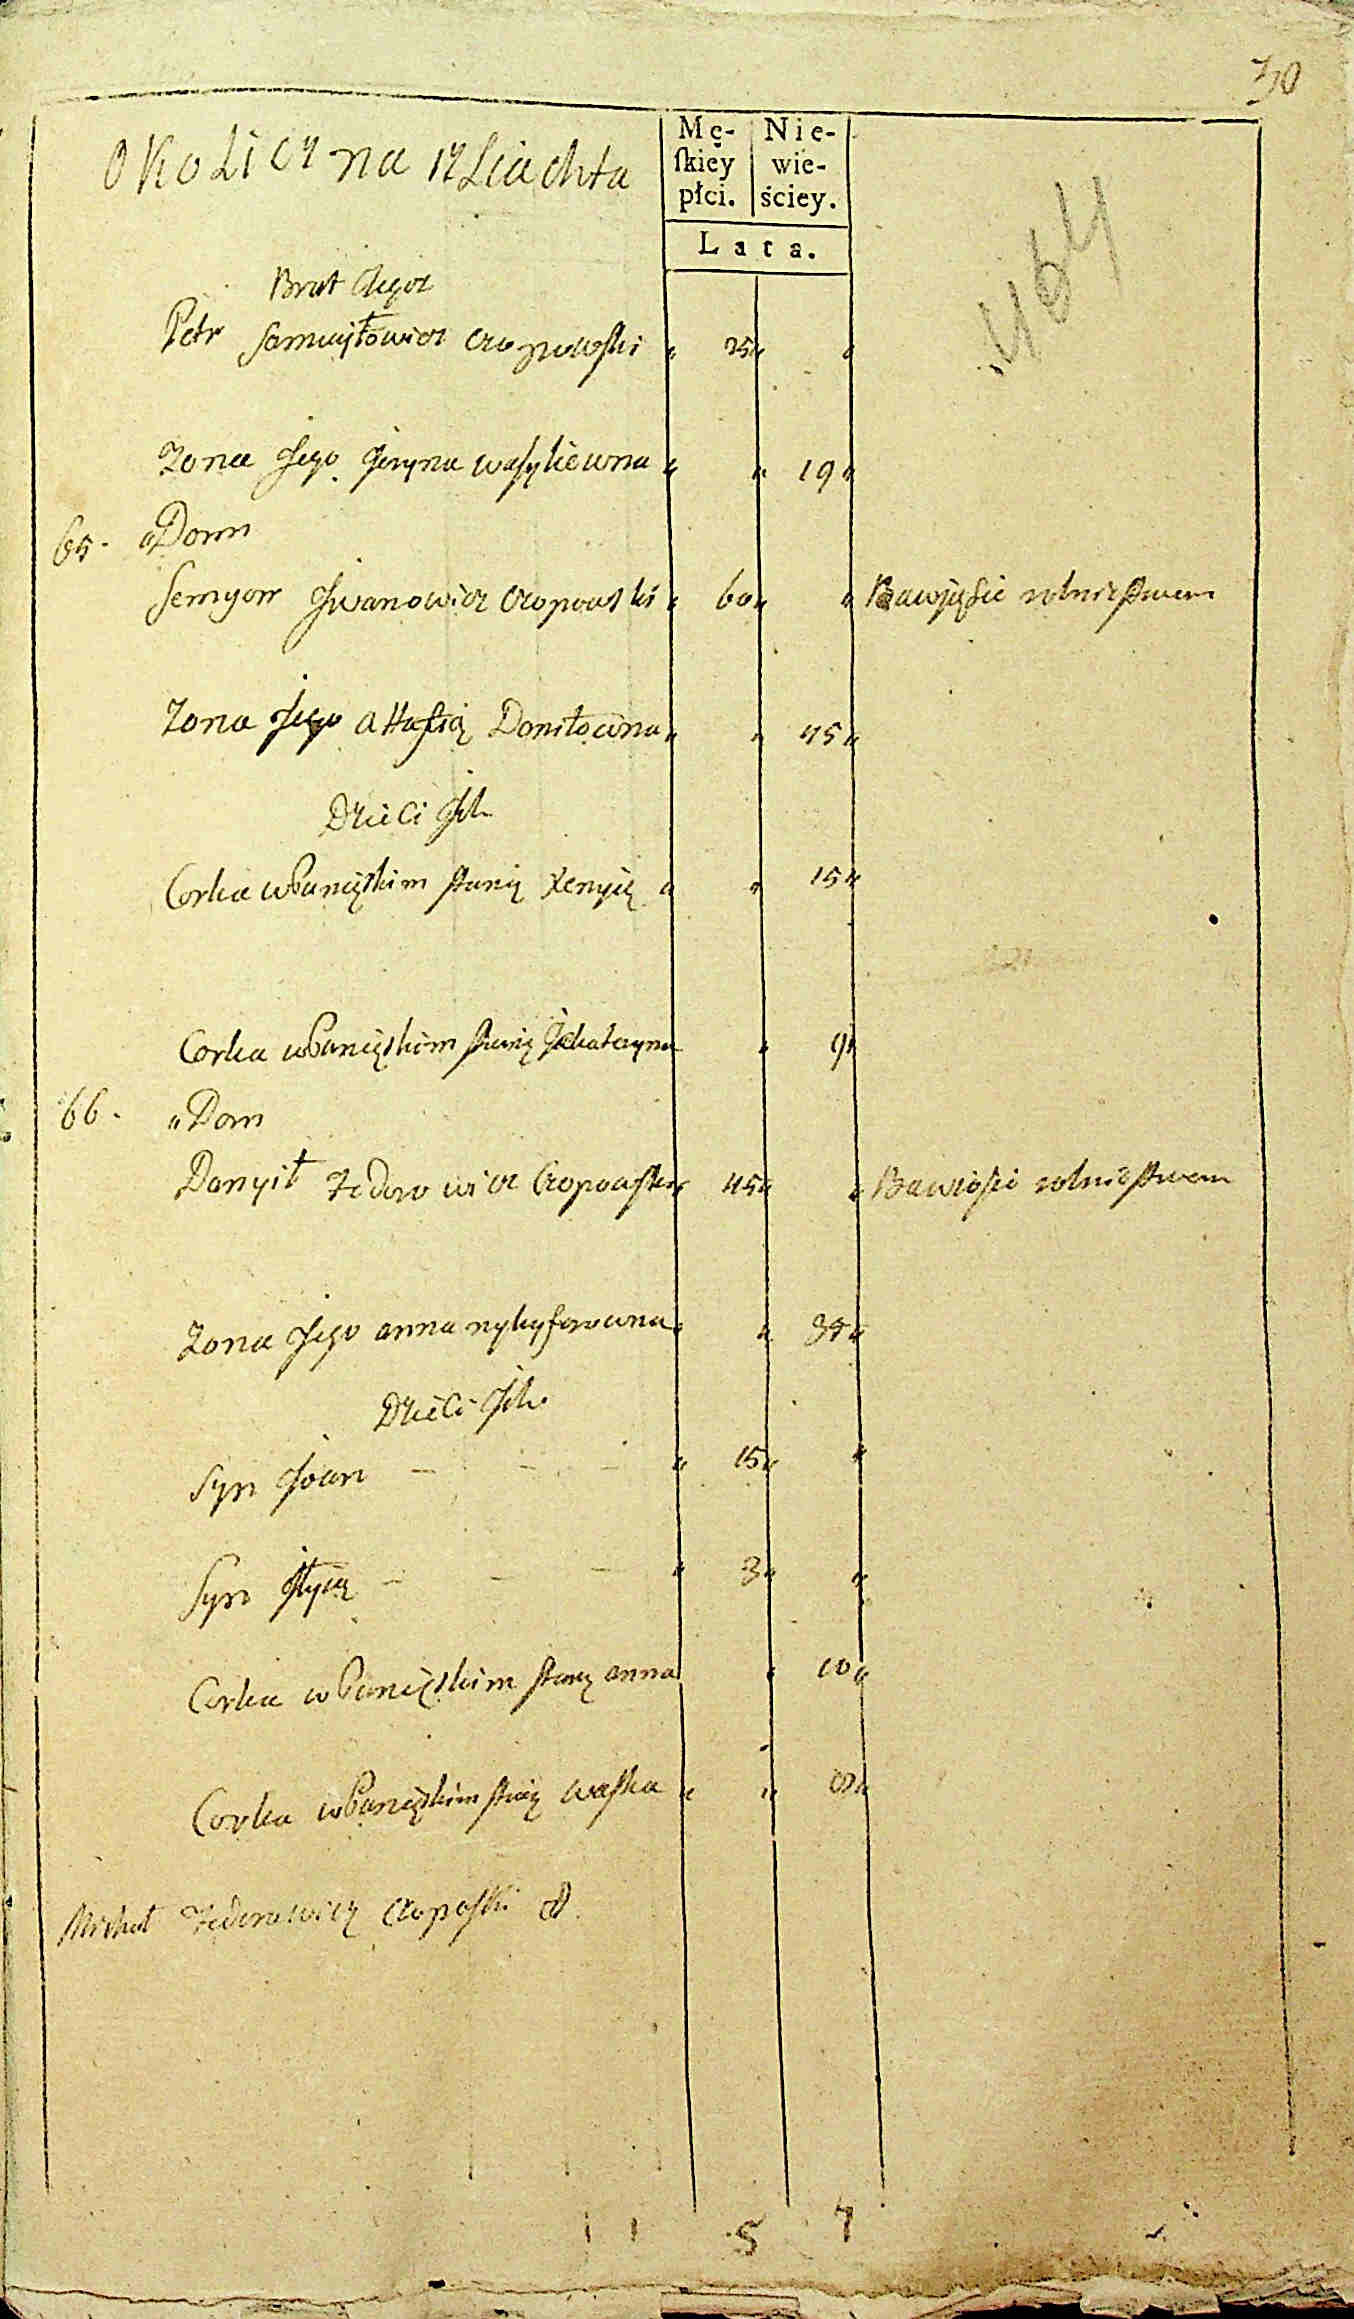 30
Okoliczna izliachta
Mę-
skiey
płci.
Nie-
wie-
ściey.
Lata.
464
Brat Jegoz
Petr Samuyłowicz Czopowski " 25 " "
Zona Jego Jryna wasyliewna " " 19 "
65. " Dom
Semyon Jwanowicz Czopowski " 60 " " Bawjęsie rolnictwem
Zona Jego Attafią Doniłowna " " 45 "
Dzieci Jch
Corka w Panięskim stanię Xenyię " " 15 "
Corka w Panięskim stanię Jekateryna " 9 "
66. " Dom
Danyił Fedorowicz Czopowski " 45 " " Bawiesie rolnictwem
Zona Jego anna nykyforowna " " 34 "
Dzieci Jch
Syn Joan - - - " 15 " "
Syn Jłyią - - - " 3 " "
Corka w Panięskim stanę anna " 10 "
Corka w Panięskim stanię waska " " 8 "
Michał Fedorowicz Czopaski
5 7